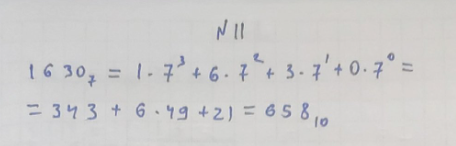 № 11
1630₇ = 1·7³ + 6·7² + 3·7¹ + 0·7⁰ =
= 343 + 6·49 + 21 = 658₁₀